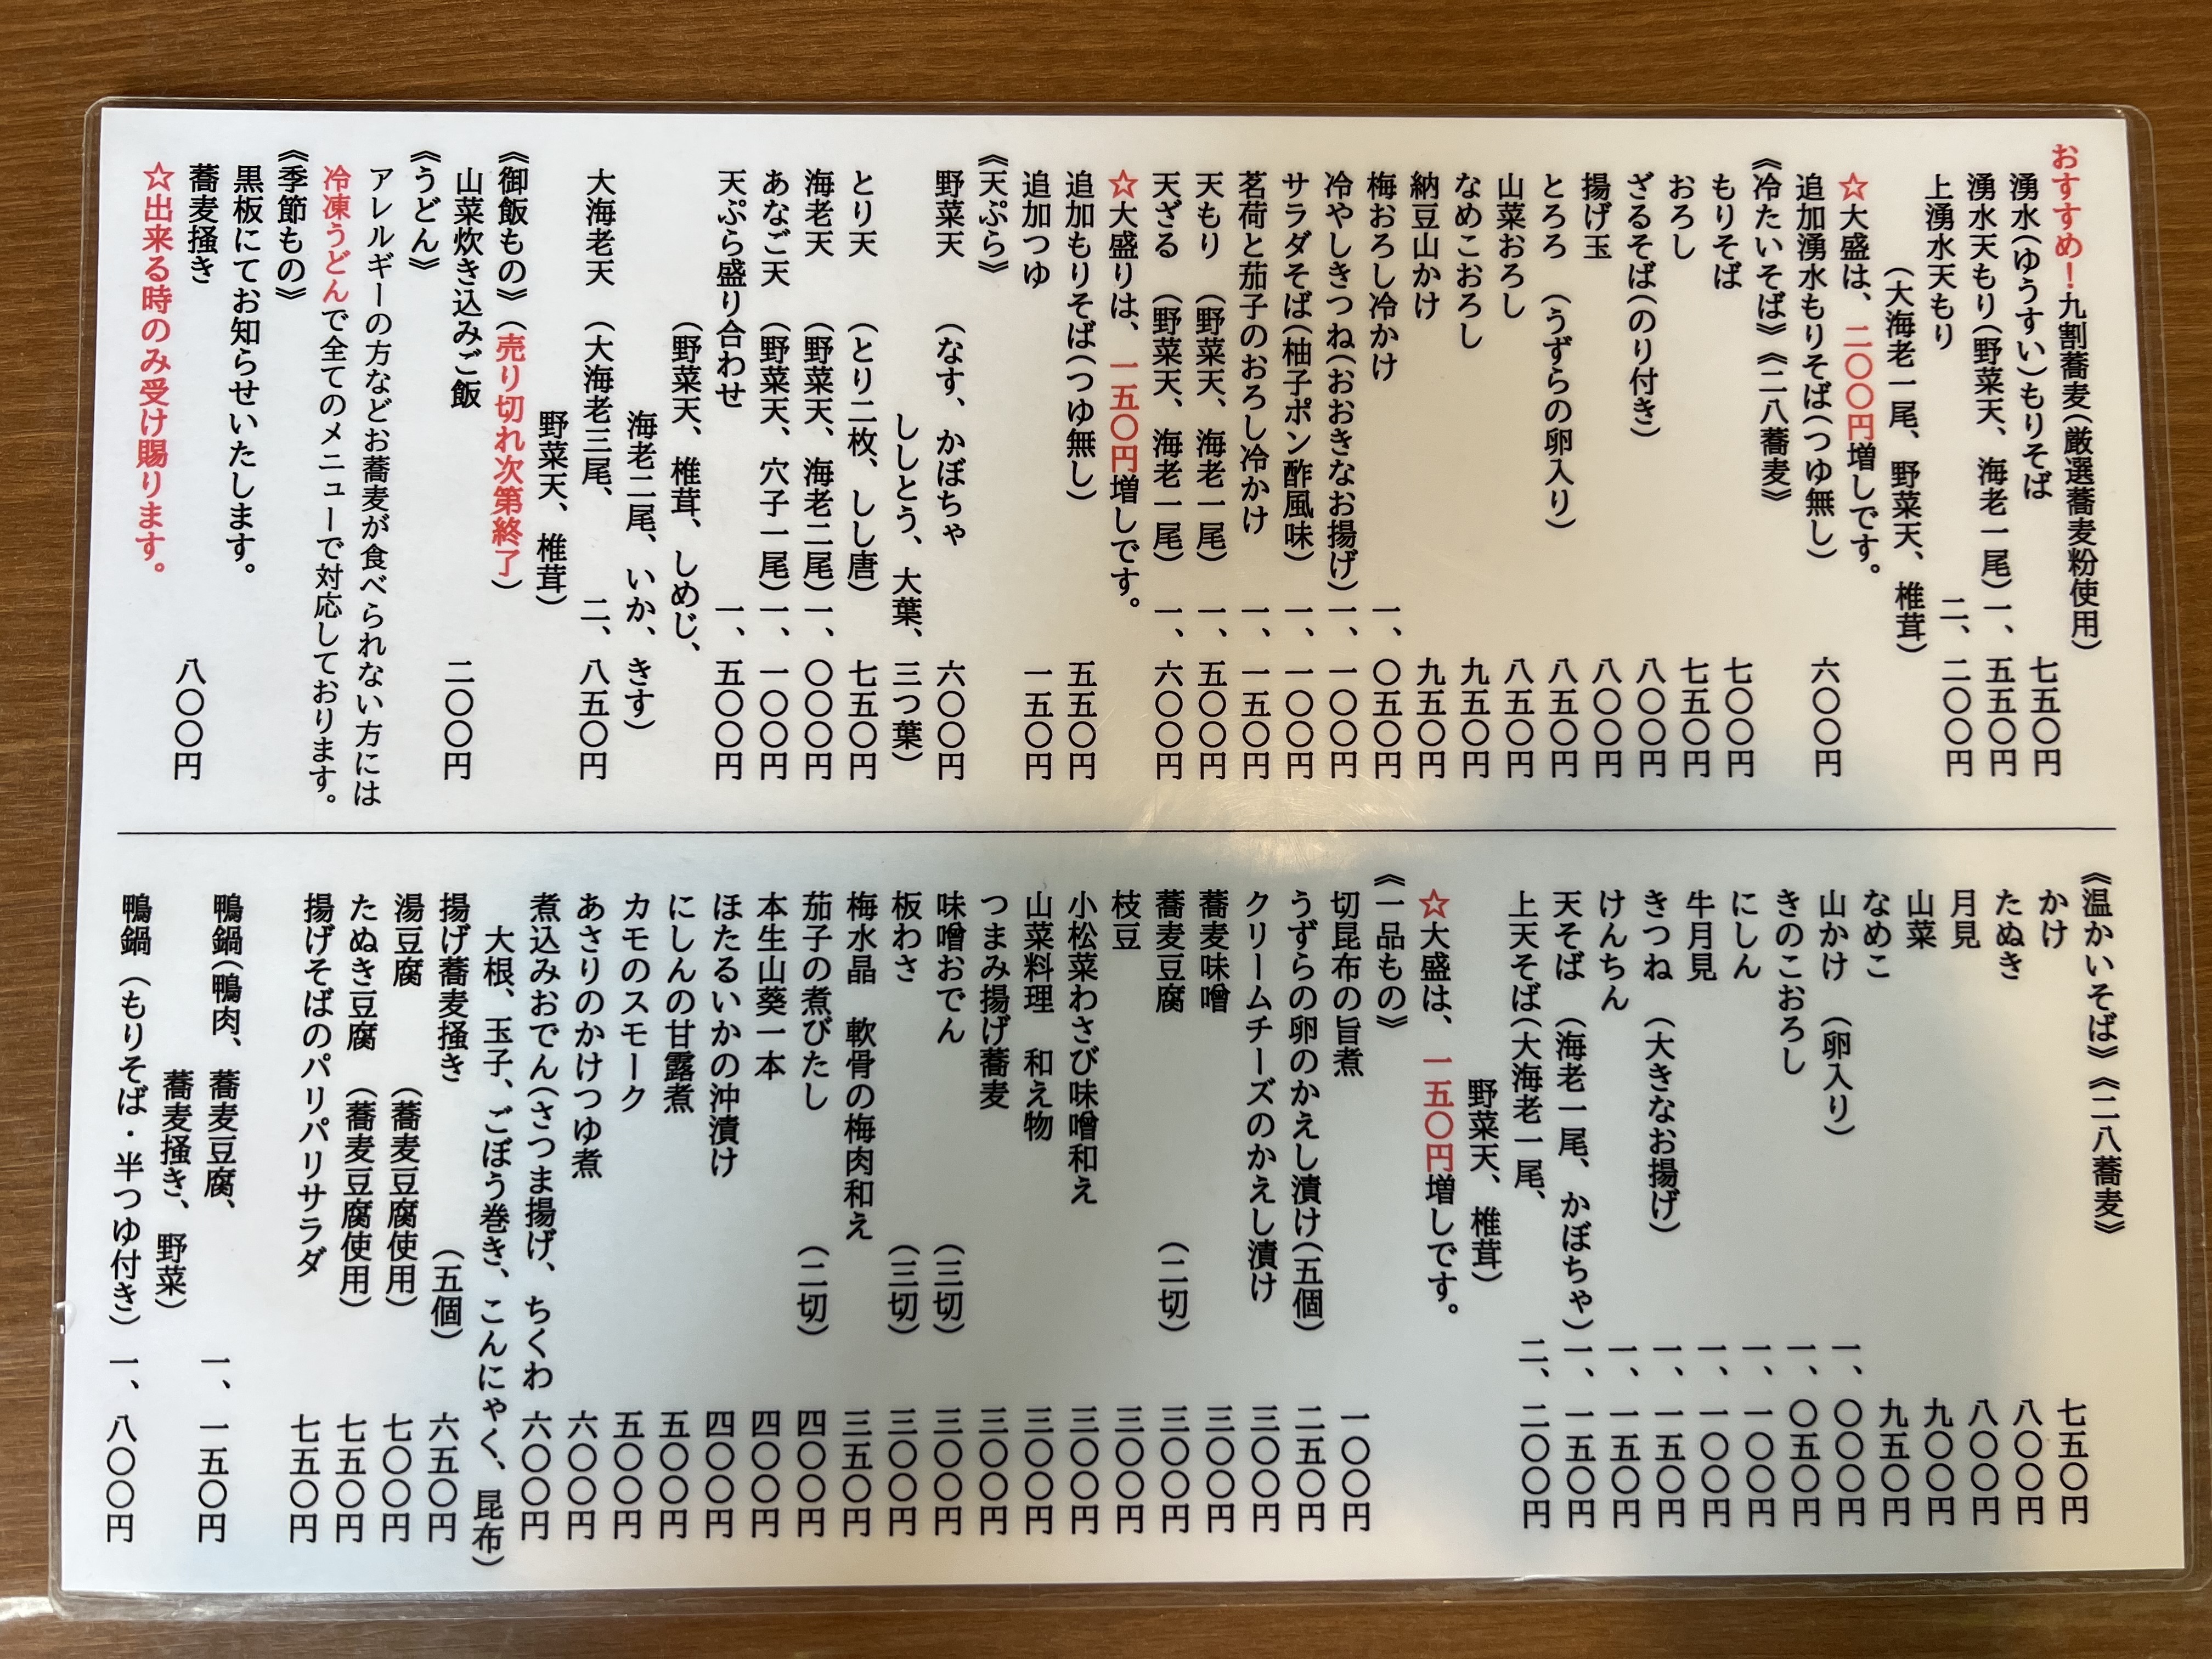 おすすめ！九割蕎麦(厳選蕎麦粉使用)
湧水(ゆうすい)もりそば 七五〇円
湧水天もり(野菜天、海老一尾)一、五五〇円
上湧水天もり 二、二〇〇円
(大海老一尾、野菜天、椎茸)
☆大盛は、二〇〇円増しです。
追加湧水もりそば(つゆ無し) 六〇〇円
《冷たいそば》《二八蕎麦》
もりそば 七〇〇円
おろし 七五〇円
ざるそば(のり付き) 八〇〇円
揚げ玉 八〇〇円
とろろ (うずらの卵入り) 八五〇円
山菜おろし 八五〇円
なめこおろし 九五〇円
納豆山かけ 九五〇円
梅おろし冷かけ 一、〇五〇円
冷やしきつね(おおきなお揚げ)一、一〇〇円
サラダそば(柚子ポン酢風味) 一、一〇〇円
茗荷と茄子のおろし冷かけ 一、一五〇円
天もり (野菜天、海老一尾) 一、五〇〇円
天ざる (野菜天、海老一尾) 一、六〇〇円
☆大盛りは、一五〇円増しです。
追加もりそば(つゆ無し) 五五〇円
追加つゆ 一五〇円
《天ぷら》
野菜天 (なす、かぼちゃ 六〇〇円
ししとう、大葉、三つ葉)
とり天 (とり二枚、しし唐) 七五〇円
海老天 (野菜天、海老二尾)一、〇〇〇円
あなご天 (野菜天、穴子一尾)一、一〇〇円
天ぷら盛り合わせ 一、五〇〇円
(野菜天、椎茸、しめじ、
海老二尾、いか、きす)
大海老天 (大海老三尾、 二、八五〇円
野菜天、椎茸)
《御飯もの》(売り切れ次第終了)
山菜炊き込みご飯 二〇〇円
《うどん》
アレルギーの方などお蕎麦が食べられない方には
冷凍うどんで全てのメニューで対応しております。
《季節もの》
黒板にてお知らせいたします。
蕎麦掻き 八〇〇円
☆出来る時のみ受け賜ります。
《温かいそば》《二八蕎麦》
かけ 七五〇円
たぬき 八〇〇円
月見 八〇〇円
山菜 九〇〇円
なめこ 九五〇円
山かけ (卵入り) 一、〇〇〇円
きのこおろし 一、〇五〇円
にしん 一、一〇〇円
牛月見 一、一〇〇円
きつね (大きなお揚げ) 一、一五〇円
けんちん 一、一五〇円
天そば (海老一尾、かぼちゃ)一、一五〇円
上天そば(大海老一尾、 二、二〇〇円
野菜天、椎茸)
☆大盛は、一五〇円増しです。
《一品もの》
切昆布の旨煮 一〇〇円
うずらの卵のかえし漬け(五個) 二五〇円
クリームチーズのかえし漬け 三〇〇円
蕎麦味噌 三〇〇円
蕎麦豆腐 (二切) 三〇〇円
枝豆 三〇〇円
小松菜わさび味噌和え 三〇〇円
山菜料理 和え物 三〇〇円
つまみ揚げ蕎麦 三〇〇円
味噌おでん (三切) 三〇〇円
板わさ (三切) 三〇〇円
梅水晶 軟骨の梅肉和え 三五〇円
茄子の煮びたし (二切) 四〇〇円
本生山葵一本 四〇〇円
ほたるいかの沖漬け 四〇〇円
にしんの甘露煮 五〇〇円
カモのスモーク 五〇〇円
あさりのかけつゆ煮 六〇〇円
煮込みおでん(さつま揚げ、ちくわ 六〇〇円
大根、玉子、ごぼう巻き、こんにゃく、昆布)
揚げ蕎麦掻き (五個) 六五〇円
湯豆腐 (蕎麦豆腐使用) 七〇〇円
たぬき豆腐 (蕎麦豆腐使用) 七五〇円
揚げそばのパリパリサラダ 七五〇円
鴨鍋(鴨肉、蕎麦豆腐、 一、一五〇円
蕎麦掻き、野菜)
鴨鍋 (もりそば・半つゆ付き) 一、八〇〇円